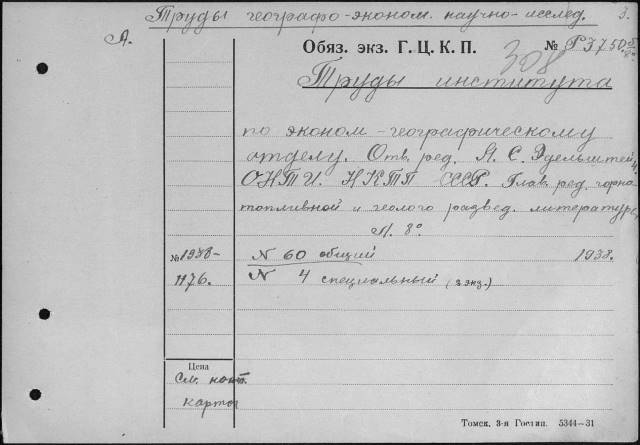 Труды географо-эконом. научно-исслед. 3.
Л.
Обяз. экз. Г. Ц. К. П. № Р 3750
308
Труды института
по эконом-географическому
отделу. Отв. ред. Я. С. Эдельштейн.
ОНТИ. НКТП СССР. Глав. ред. горно
топливной и геолого развед. литературы
Л. 8°
№ 1938- N 60 общий 1933.
1176. N 4 специальный (2 экз.)
Цена
См. конт.
карточ
Томск. 3-я Гостип. 5344—31